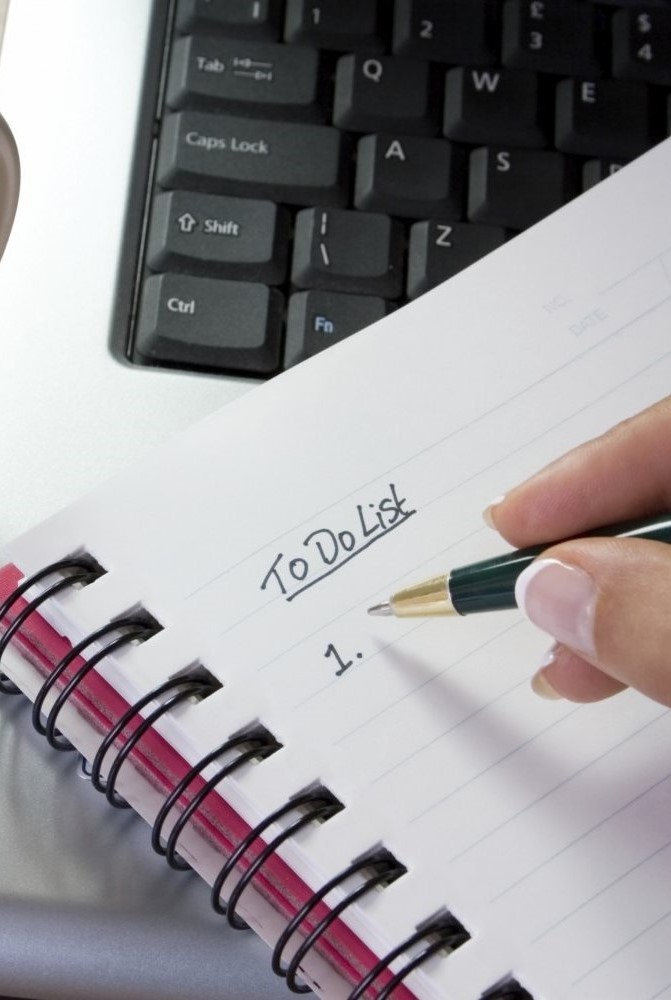 1 2 £ 3 $ 4
Tab Q W E
Caps Lock A S
Shift | \ Z
Ctrl Fn
NO.
DATE
To Do List
1.